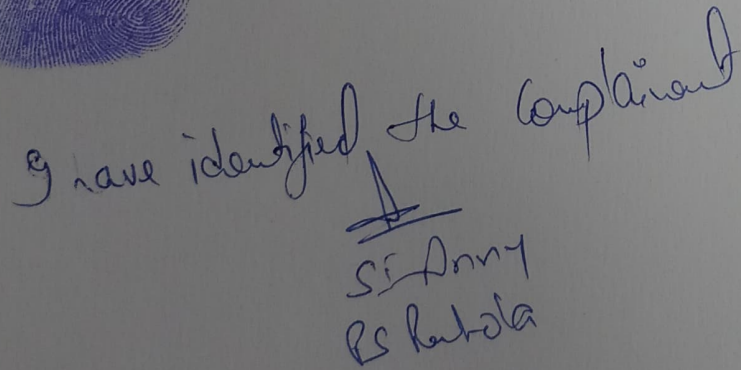 I have identified the complainant
SI Anny
PS